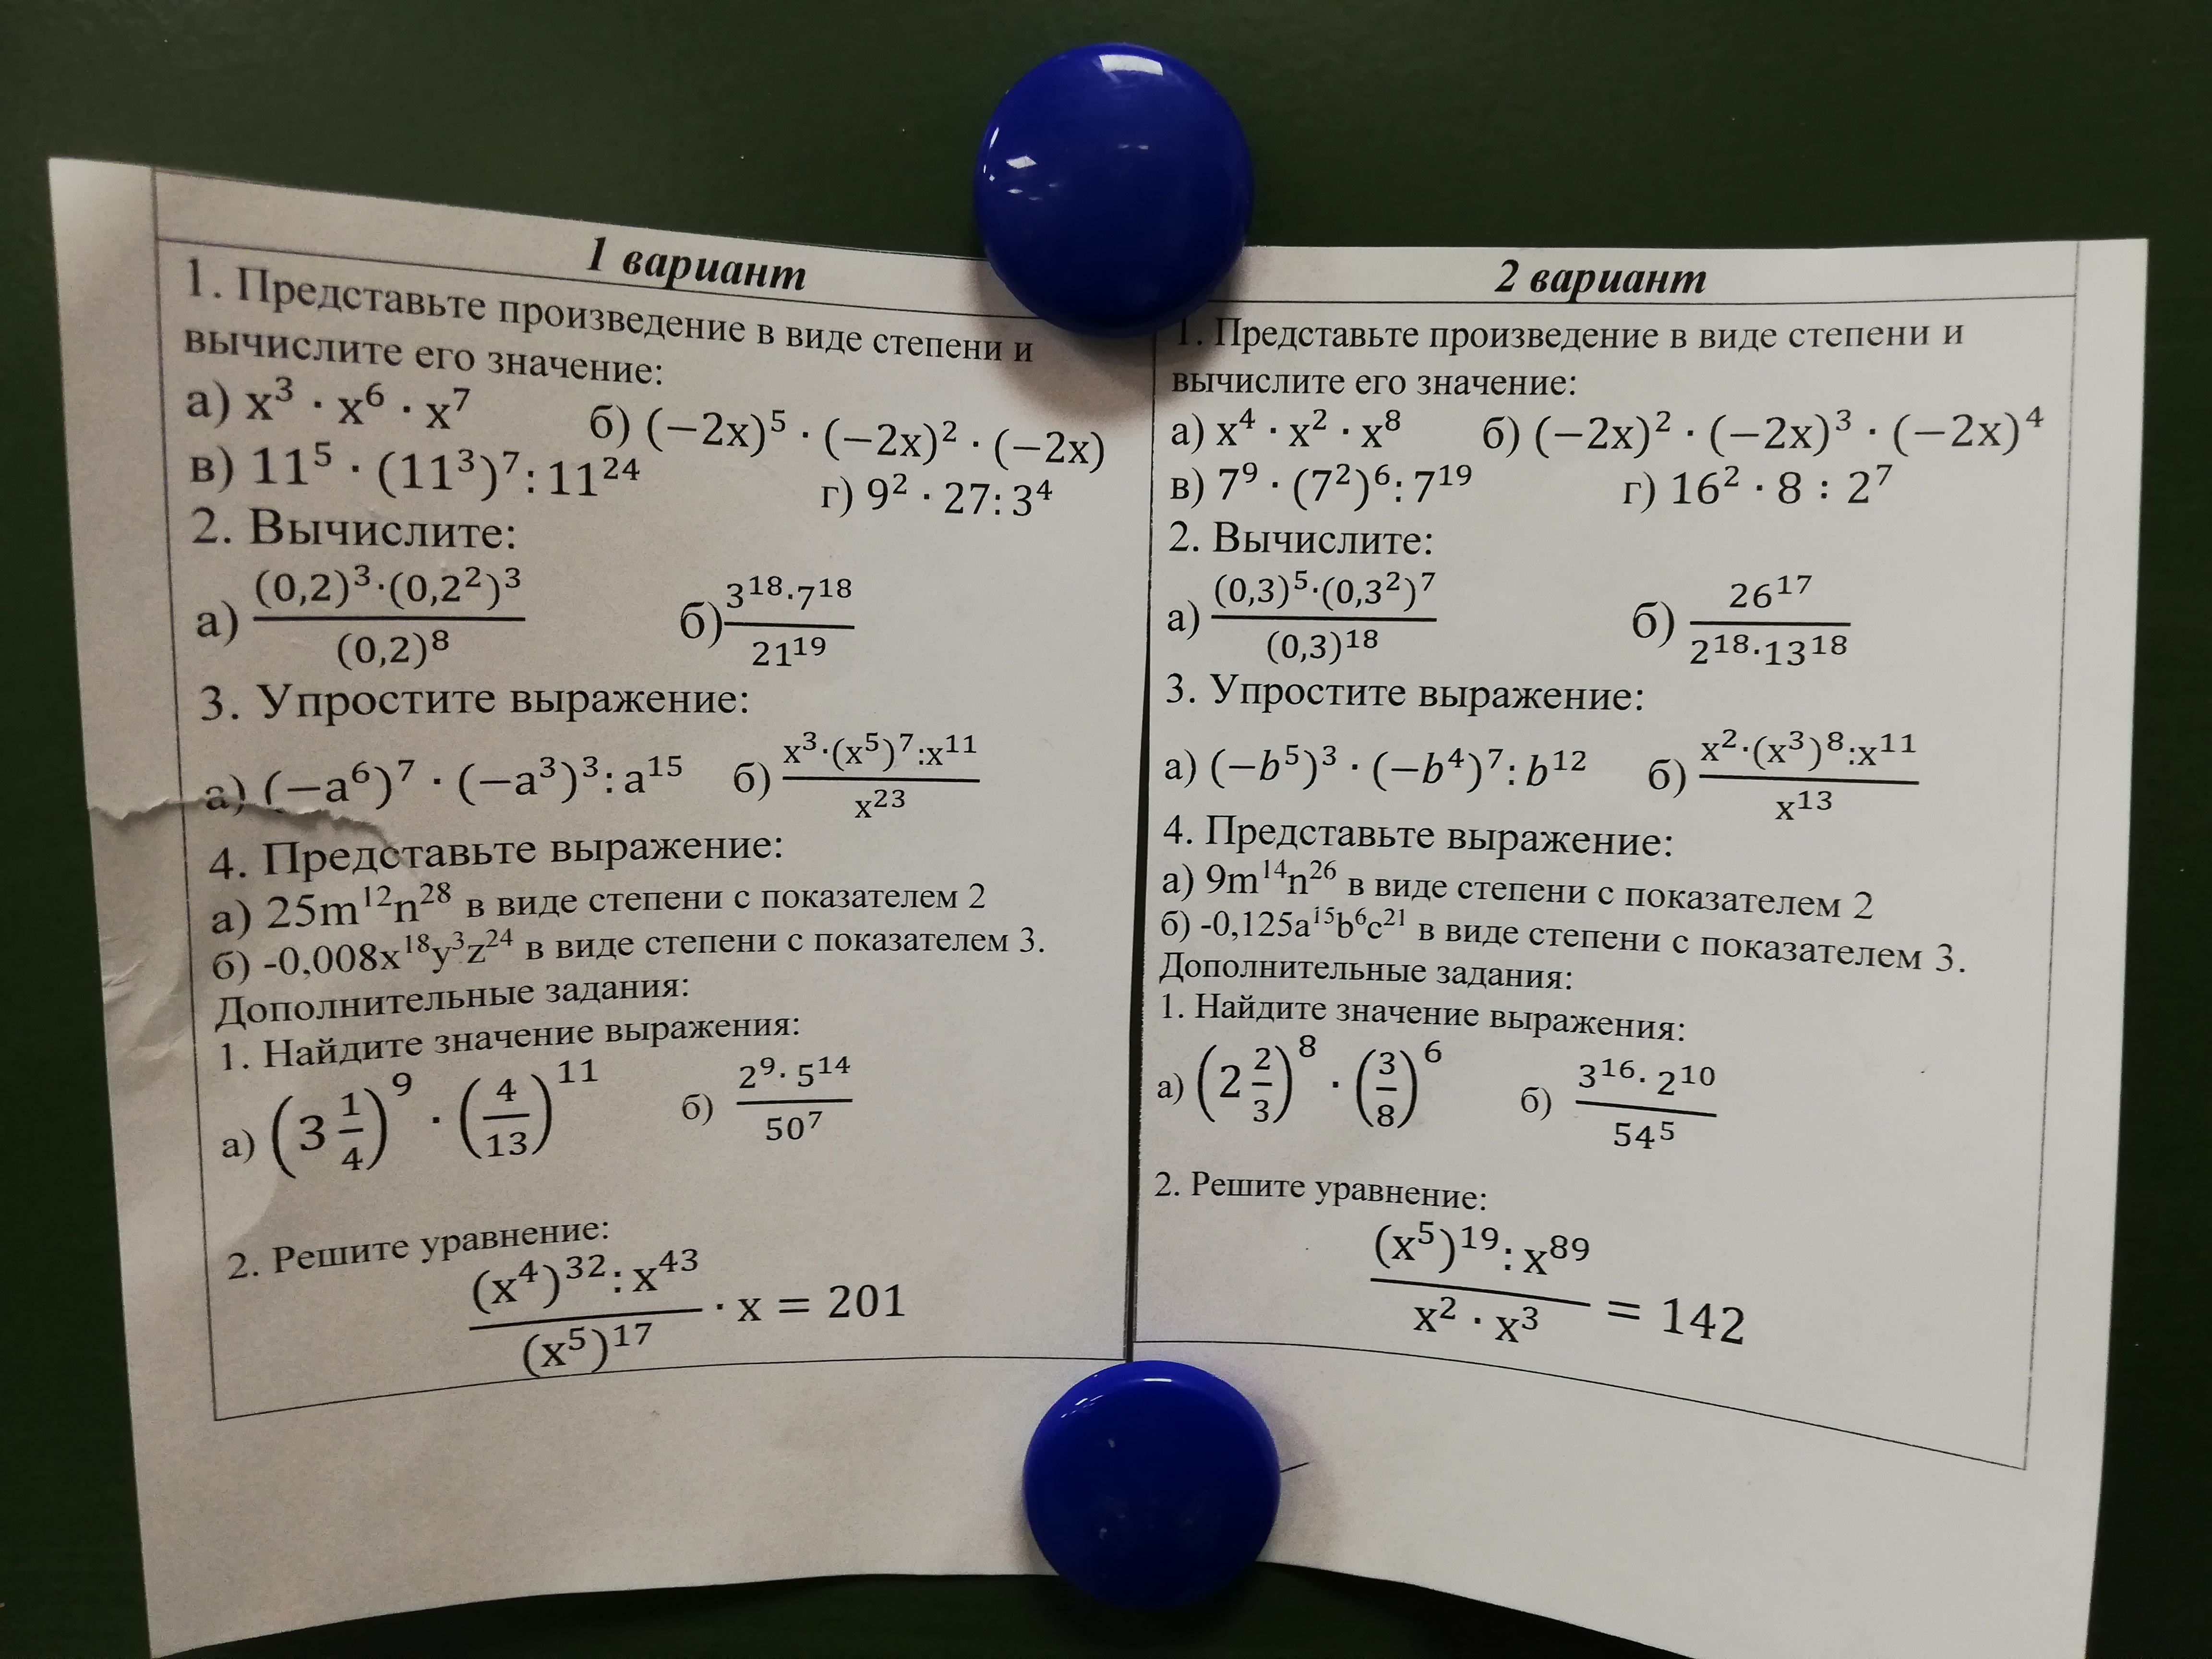 1 вариант
1. Представьте произведение в виде степени и
вычислите его значение:
а) x³ · x⁶ · x⁷ б) (−2x)⁵ · (−2x)² · (−2x)
в) 11⁵ · (11³)⁷: 11²⁴ г) 9² · 27: 3⁴
2. Вычислите:
а) (0,2)³·(0,2²)³ / (0,2)⁸ б) 3¹⁸·7¹⁸ / 21¹⁹
3. Упростите выражение:
а) (−a⁶)⁷ · (−a³)³: a¹⁵ б) x³·(x⁵)⁷:x¹¹ / x²³
4. Представьте выражение:
а) 25m¹²n²⁸ в виде степени с показателем 2
б) -0,008x¹⁸y³z²⁴ в виде степени с показателем 3.
Дополнительные задания:
1. Найдите значение выражения:
а) (3 1/4)⁹ · (4/13)¹¹ б) 2⁹· 5¹⁴ / 50⁷
2. Решите уравнение:
(x⁴)³²: x⁴³ / (x⁵)¹⁷ · x = 201
2 вариант
1. Представьте произведение в виде степени и
вычислите его значение:
а) x⁴ · x² · x⁸ б) (−2x)² · (−2x)³ · (−2x)⁴
в) 7⁹ · (7²)⁶: 7¹⁹ г) 16² · 8 : 2⁷
2. Вычислите:
а) (0,3)⁵·(0,3²)⁷ / (0,3)¹⁸ б) 26¹⁷ / 2¹⁸·13¹⁸
3. Упростите выражение:
а) (−b⁵)³ · (−b⁴)⁷: b¹² б) x²·(x³)⁸:x¹¹ / x¹³
4. Представьте выражение:
а) 9m¹⁴n²⁶ в виде степени с показателем 2
б) -0,125a¹⁵b⁶c²¹ в виде степени с показателем 3.
Дополнительные задания:
1. Найдите значение выражения:
а) (2 2/3)⁸ · (3/8)⁶ б) 3¹⁶· 2¹⁰ / 54⁵
2. Решите уравнение:
(x⁵)¹⁹: x⁸⁹ / x² · x³ = 142